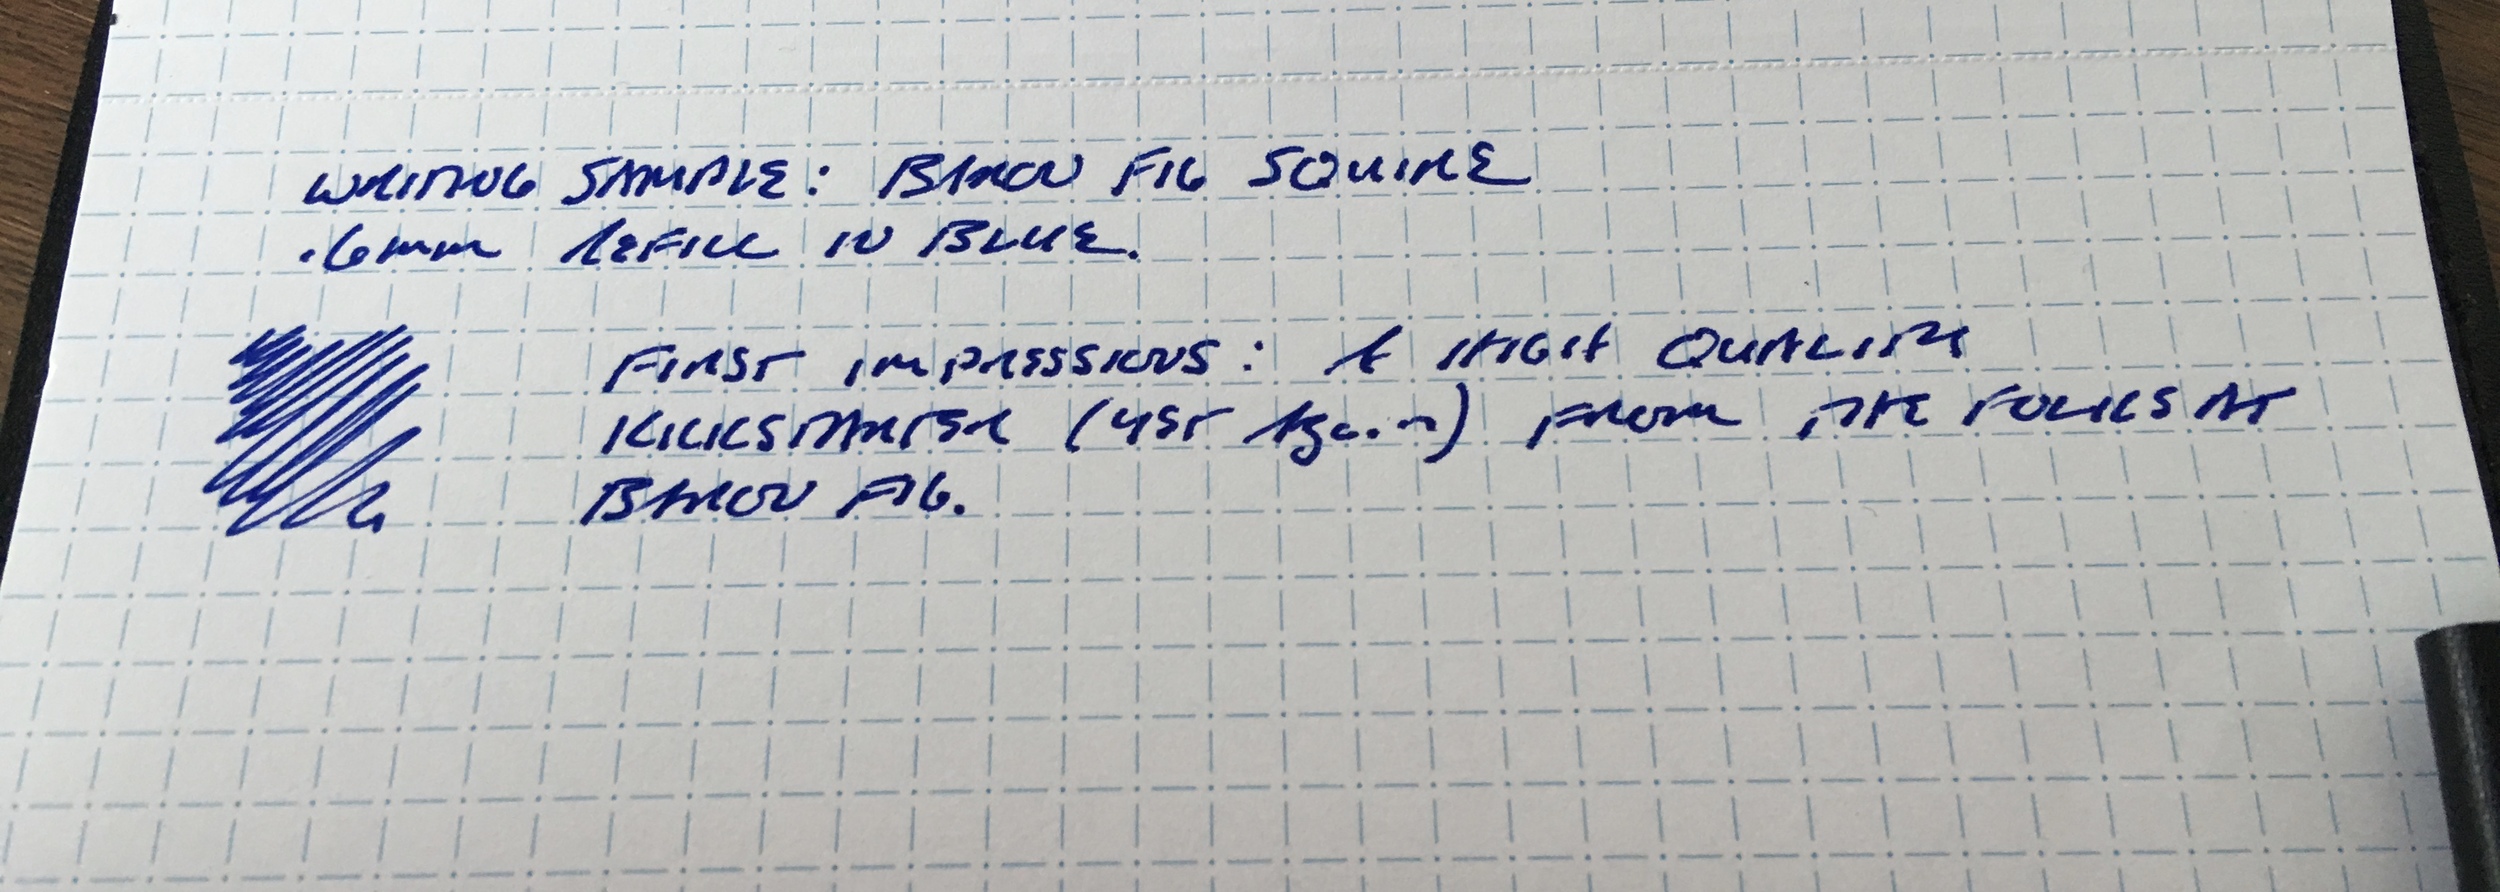 WRITING SAMPLE: BARON FIG SQUIRE
.6mm REFILL IN BLUE.
FIRST IMPRESSIONS: A HIGH QUALITY
KICKSTARTER (YET Again) FROM THE FOLKS AT
BARON FIG.